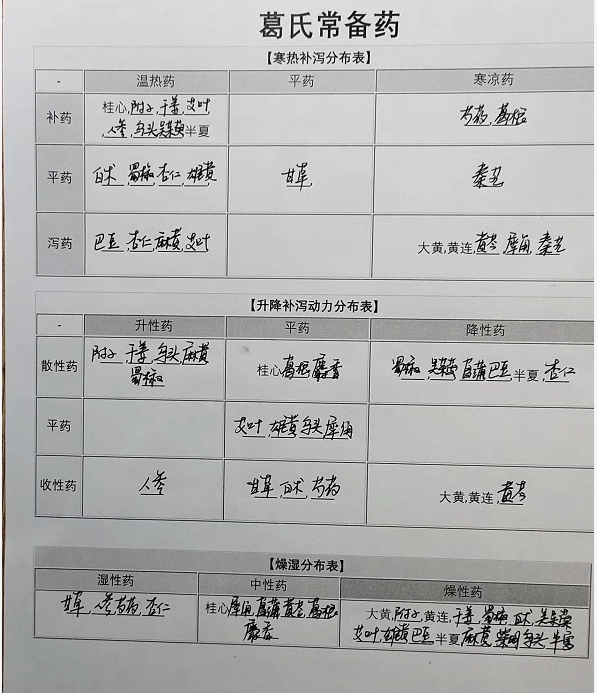 葛氏常备药
【寒热补泻分布表】
- 温热药 平药 寒凉药
补药 桂心,附子,干姜,艾叶 芍药,葛根
,人参,乌头吴茱萸半夏
平药 白术,蜀椒,杏仁,雄黄 甘草, 秦艽
泻药 巴豆,杏仁,麻黄,艾叶 大黄,黄连,黄芩,犀角,秦艽
【升降补泻动力分布表】
- 升性药 平药 降性药
散性药 附子,干姜,乌头麻黄 桂心葛根麝香 蜀椒,吴茱萸菖蒲巴豆,半夏,杏仁
蜀椒
平药 艾叶,雄黄乌头犀角
收性药 人参 甘草,白术,芍药 大黄,黄连,黄芩
【燥湿分布表】
湿性药 中性药 燥性药
甘草,人参芍药,杏仁 桂心犀角菖蒲黄芩葛根 大黄,附子,黄连,干姜,蜀椒,白术,吴茱萸
麝香 艾叶,雄黄巴豆半夏麻黄柴胡乌头